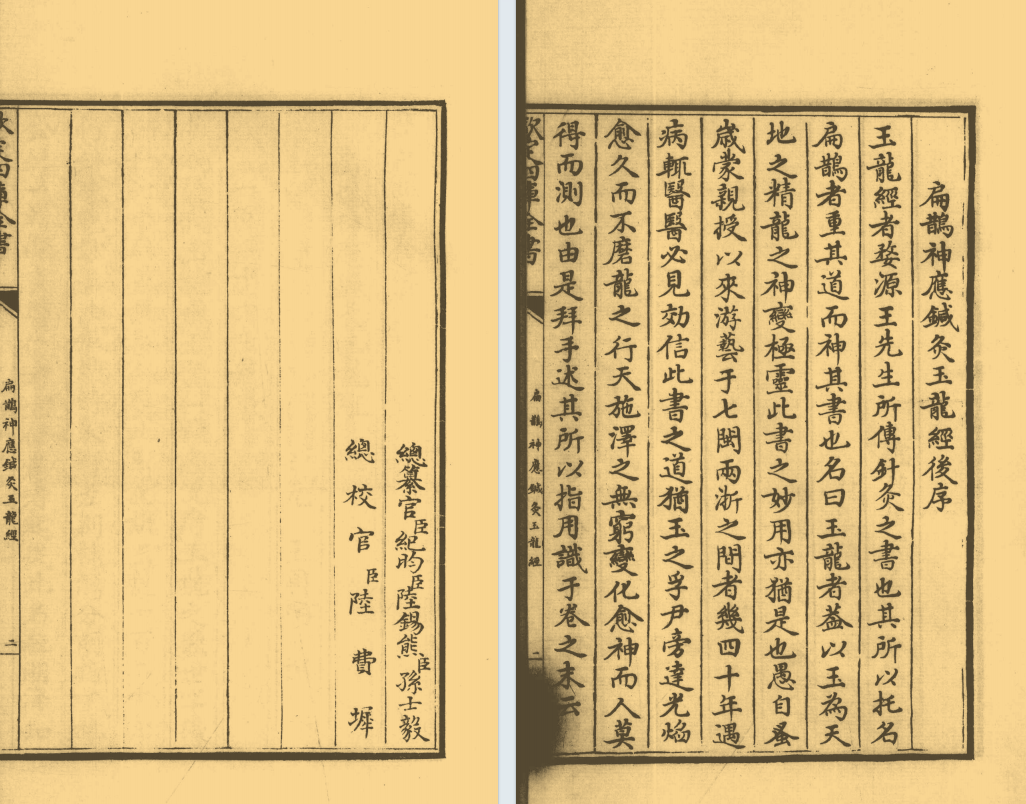 扁鵲神應鍼灸玉龍經後序
玉龍經者婺源王先生所傳針灸之書也其所以托名
扁鵲者重其道而神其書也名曰玉龍者葢以玉為天
地之精龍之神變極靈此書之妙用亦猶是也愚自蚤
歲蒙親授以來游藝于七閩兩浙之間者幾四十年遇
病輒醫醫必見効信此書之道猶玉之孚尹旁達光焰
愈久而不磨龍之行天施澤之無窮變化愈神而人莫
得而測也由是拜手述其所以指用識于卷之末云
欽定四庫全書
扁鵲神應鍼灸玉龍經
一
總纂官臣紀昀臣陸錫熊臣孫士毅
總校官臣陸費墀
欽定四庫全書
扁鵲神應鍼灸玉龍經
二